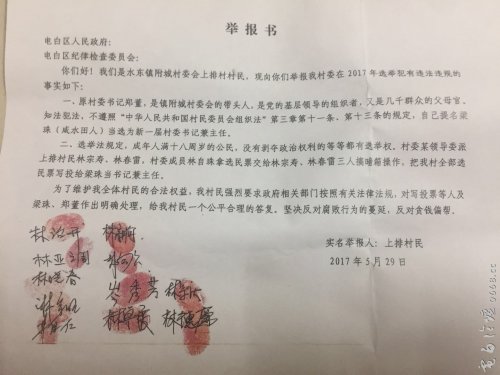 举报书
电白区人民政府：
电白区纪律检查委员会：
你们好！我们是水东镇附城村委会上排村村民，现向你们举报我村委在2017年选举犯有违法违规的
事实如下：
一、原村委书记郑董，是镇附城村委会的带头人，是党的基层领导的组织者，又是几千群众的父母官，
知法犯法，不遵照“中华人民共和国村民委员会组织法”第三章第十一条、第十三条的规定，自己提名梁
珠（咸水田人）当选为新一届村委书记兼主任。
二、选举法规定，成年人满十八周岁的公民，没有剥夺政治权利的等等都有选举权。村委某领导委派
上排村民林宗寿、林春雷，村委成员林自珠拿选民票交给林宗寿、林春雷三人搞暗箱操作，把我村全部选
民票写投给梁珠当书记兼主任。
为了维护我全体村民的合法权益，我村民强烈要求政府相关部门按照有关法律法规，对写投票等人及
梁珠、郑董作出明确处理，给我村民一个公平合理的答复。坚决反对腐败行为的蔓延，反对贪钱偏帮。
实名举报人：上排村民
2017年5月29日
林亚
林晓春
岑秀芳
林